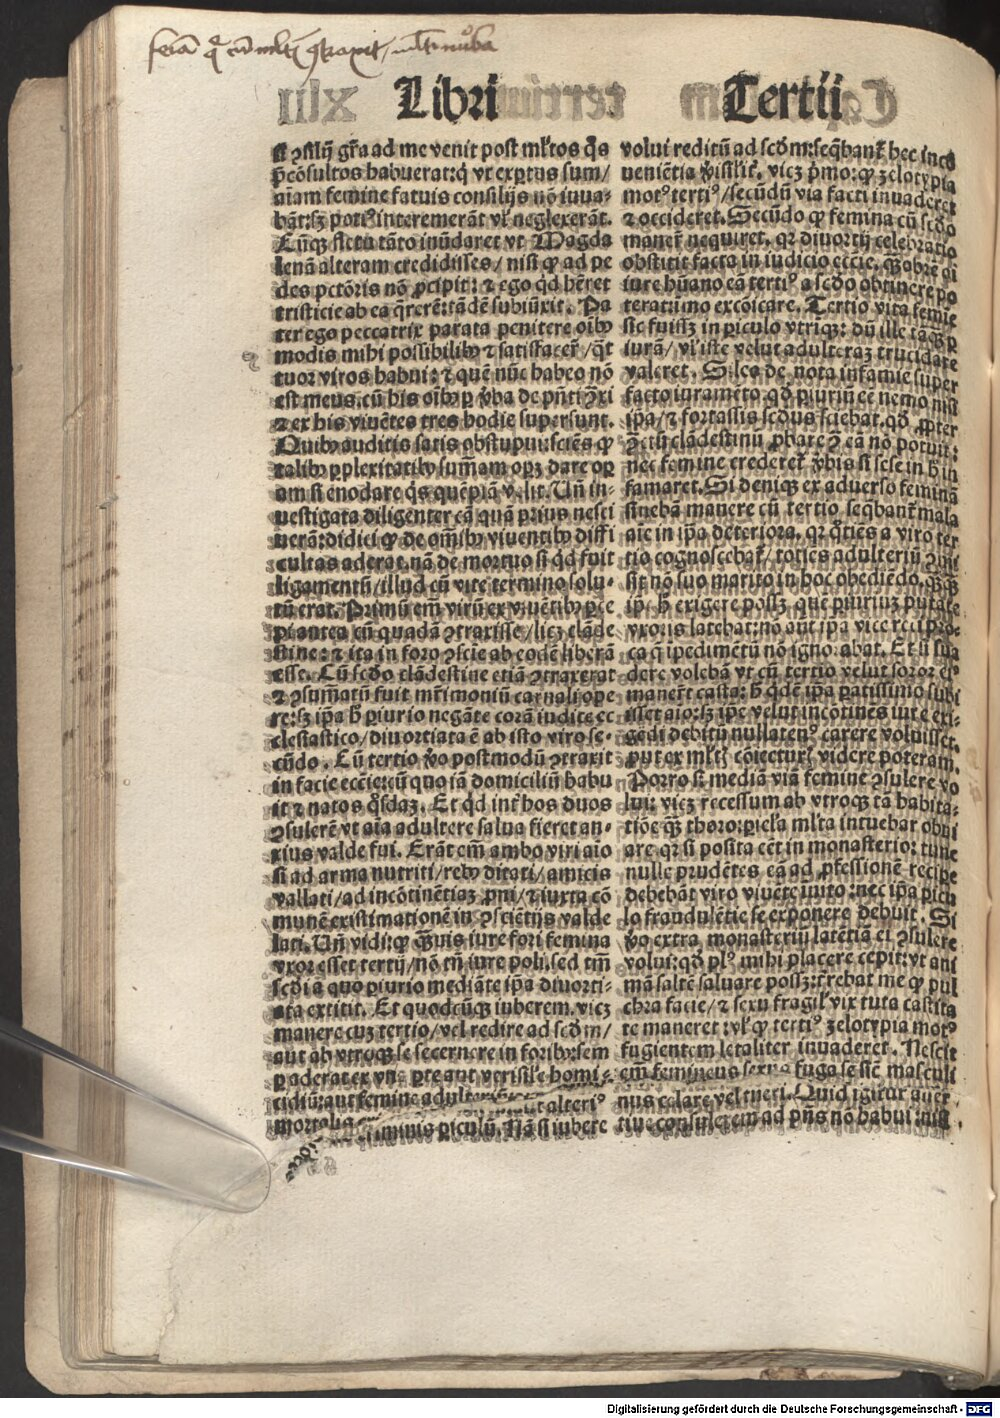 Libri Tertii
ꝯsilij gr̄a ad me venit post ml̄tos q̄s
p̄cōsultos habuerat: q̄ vt exꝑtus sum/
aīam femine fatuis consilijs nō iuua-
bāt: sꝫ potiꝰ interemerāt vl̓ neglexerāt.
Cūqꝫ fletu tāto inūdaret vt Magda
lenā alteram credidisses/ nisi ꝙ ad pe
des pctōris nō ꝓcipit: ⁊ ego qd̓ hēret
tristicie ab ea q̄rerē: tādē subiūxit. Pa
ter ego peccatrix parata penitere oībꝰ
modis mihi possibilibꝰ ⁊ satisfacer̄/ q̄t
tuor viros habui: ⁊ quē nūc habeo nō
est meus. cū his oībꝰ ꝑ v̓ba de pn̄ti ꝯ̄xi
⁊ ex his viuētes tres hodie supersunt.
Quibꝰ auditis satis obstupui: sciēs ꝙ
talibꝰ ꝑplexitatibꝰ sum̄am oꝑꝫ dare oꝑ
am si enodare q̄s quēpiā v. lit. Un̄ in-
uestigata diligenter cā quā prius nesci
uerā: didici ꝙ de om̄ibꝰ viuentibꝰ diffi
cultas aderat. nā de mortuo si qd̓ fuit
ligamentū/ illud cū vite termino solu-
tū erat. Primū em̄ virū ex viuētibꝰ
antea cū quadā ꝯtraxisse/ licꝫ clāde
stine: ⁊ ita in foro ꝯscie ab eodē liberā
esse. Cū scd̓o clādestine etiā ꝯtraxerat
⁊ ꝯsum̄atū fuit mr̄imoniū carnali ope
re: sꝫ ip̄a h̓ ꝑiurio negāte corā iudice ec
clesiastico/ diuortiata ē ab isto viro se-
cūdo. Cū tertio v̓o postmodū ꝯtraxit
in facie eccīe: cū quo iā domiciliū habu
it ⁊ natos q̄sdaꝫ. Et qd̓ int̄ hos duos
ꝯsulerē vt aīa adultere salua fieret an-
xius valde fui. Erāt em̄ ambo viri aio
si ad arma nutriti/ rebꝰ ditati/ amicis
vallati/ ad incōtinētiaꝫ ꝓni/ ⁊ iuxta cō
munē existimationē in ꝯsciētijs valde
lati. Un̄ vidi: ꝙ q̄uis iure fori femina
vxor esset tertij/ nō tn̄ iure poli. sed tm̄
scd̓i a quo ꝑiurio mediāte ip̄a diuorti-
ata extitit. Et quodcūqꝫ iuberem. vicꝫ
manere cuꝫ tertio/ vel redire ad scd̓m/
aut ab vtroqꝫ se secernere in foribꝰ: sem
ꝑ aderat ex vna ꝑte aut verisil̓e homi-
cidiū: aut femine adulteriū aut alteriꝰ
mortalis criminis ꝑiculū. Nā si iubere
volui reditū ad scd̓m: seq̄bant̄ hec inco
ueniētia v̓isil̓it̄. vicꝫ p̄mo: ꝙ zelotypia
motꝰ tertiꝰ/ secūdū via facti inuaderet
⁊ occideret. Secūdo ꝙ femina cū scd̓o
maner̄ nequiret. qꝛ diuortij celebratio
obstitit facta in iudicio eccīe.
iure hūano eā tertiꝰ a scd̓o obtinere po
teratiīmo excōicare. Tertio vita femīe
sic fuissꝫ in ꝑiculo vtriqꝫ: dū ille tāqꝫ ꝑ
iurā/ vl̓ iste velut adulteraꝫ trucidare
valeret. Sileo de nota infamie super
facto iuramēto. qd̓ ꝑiuriū eē nemo nisi
ip̄a/ ⁊ fortassis scd̓us sciebat. qd̓ ꝓpter
ꝯ̄ctū clādestinū ꝓbare ꝯ̄ eā nō potuit:
nec femine crederet̄ v̓bis si sese in h̓ in
famaret. Si deniqꝫ ex aduerso feminā
sinebā manere cū tertio. seq̄bant̄ mala
aīe in ip̄a deteriora. qꝛ q̄tiēs a viro ter
tio cognoscebat̄/ toties adulteriū ꝯmi
sit nō suo marito in hoc obediēdo. q̄qꝫ
ip̄e h̓ exigere possꝫ. quē ꝑiuriuꝫ putate
vxoris latebat: nō aut ip̄a vice recipro-
ca q̄ ipedimētū nō ignorabat. Et si sua
dere volebā vt cū tertio velut soror eiꝰ
maner̄t casta: h̓ qd̓ē ip̄a ꝑatissimo subi
isset aīo: sꝫ ip̄e velut incōtinēs iure exi-
gēdi debitū nullatenꝰ carere voluisset.
ꝓut ex ml̄tꝫ cōiecturꝫ videre poteram.
Porro si mediā viā femine ꝯsulere vo
lui: vicꝫ recessum ab vtroqꝫ tā habita-
tiōe q̄ꝫ thoro: ꝑicl̓a ml̄ta intuebar obui
are qꝛ si posita eēt in monasterio: tunc
nulle prudētes eā ad ꝓfessionē recipe
debebāt viro viuēte inuito: nec ip̄a picu
lo fraudulētie se exponere debuit. Si
v̓o extra monasteriū latētiā ei ꝯsulere
volui: qd̓ plꝰ mihi placere cepit: vt ani
mā saltē saluare possꝫ: t̄rebat me ꝙ pul
chra facie/ ⁊ sexu fragil̓ vix tuta castita
te maneret: vl̓ ꝙ tertiꝰ zelotypia motꝰ
fugientem letaliter inuaderet. Nescit
em̄ femineus sexus fuga se sic̄ masculi
nus celare vel tueri. Quid igitur auer
tiue consulerem ad p̄ns nō habui: nisi
Digitalisierung gefördert durch die Deutsche Forschungsgemeinschaft - DFG